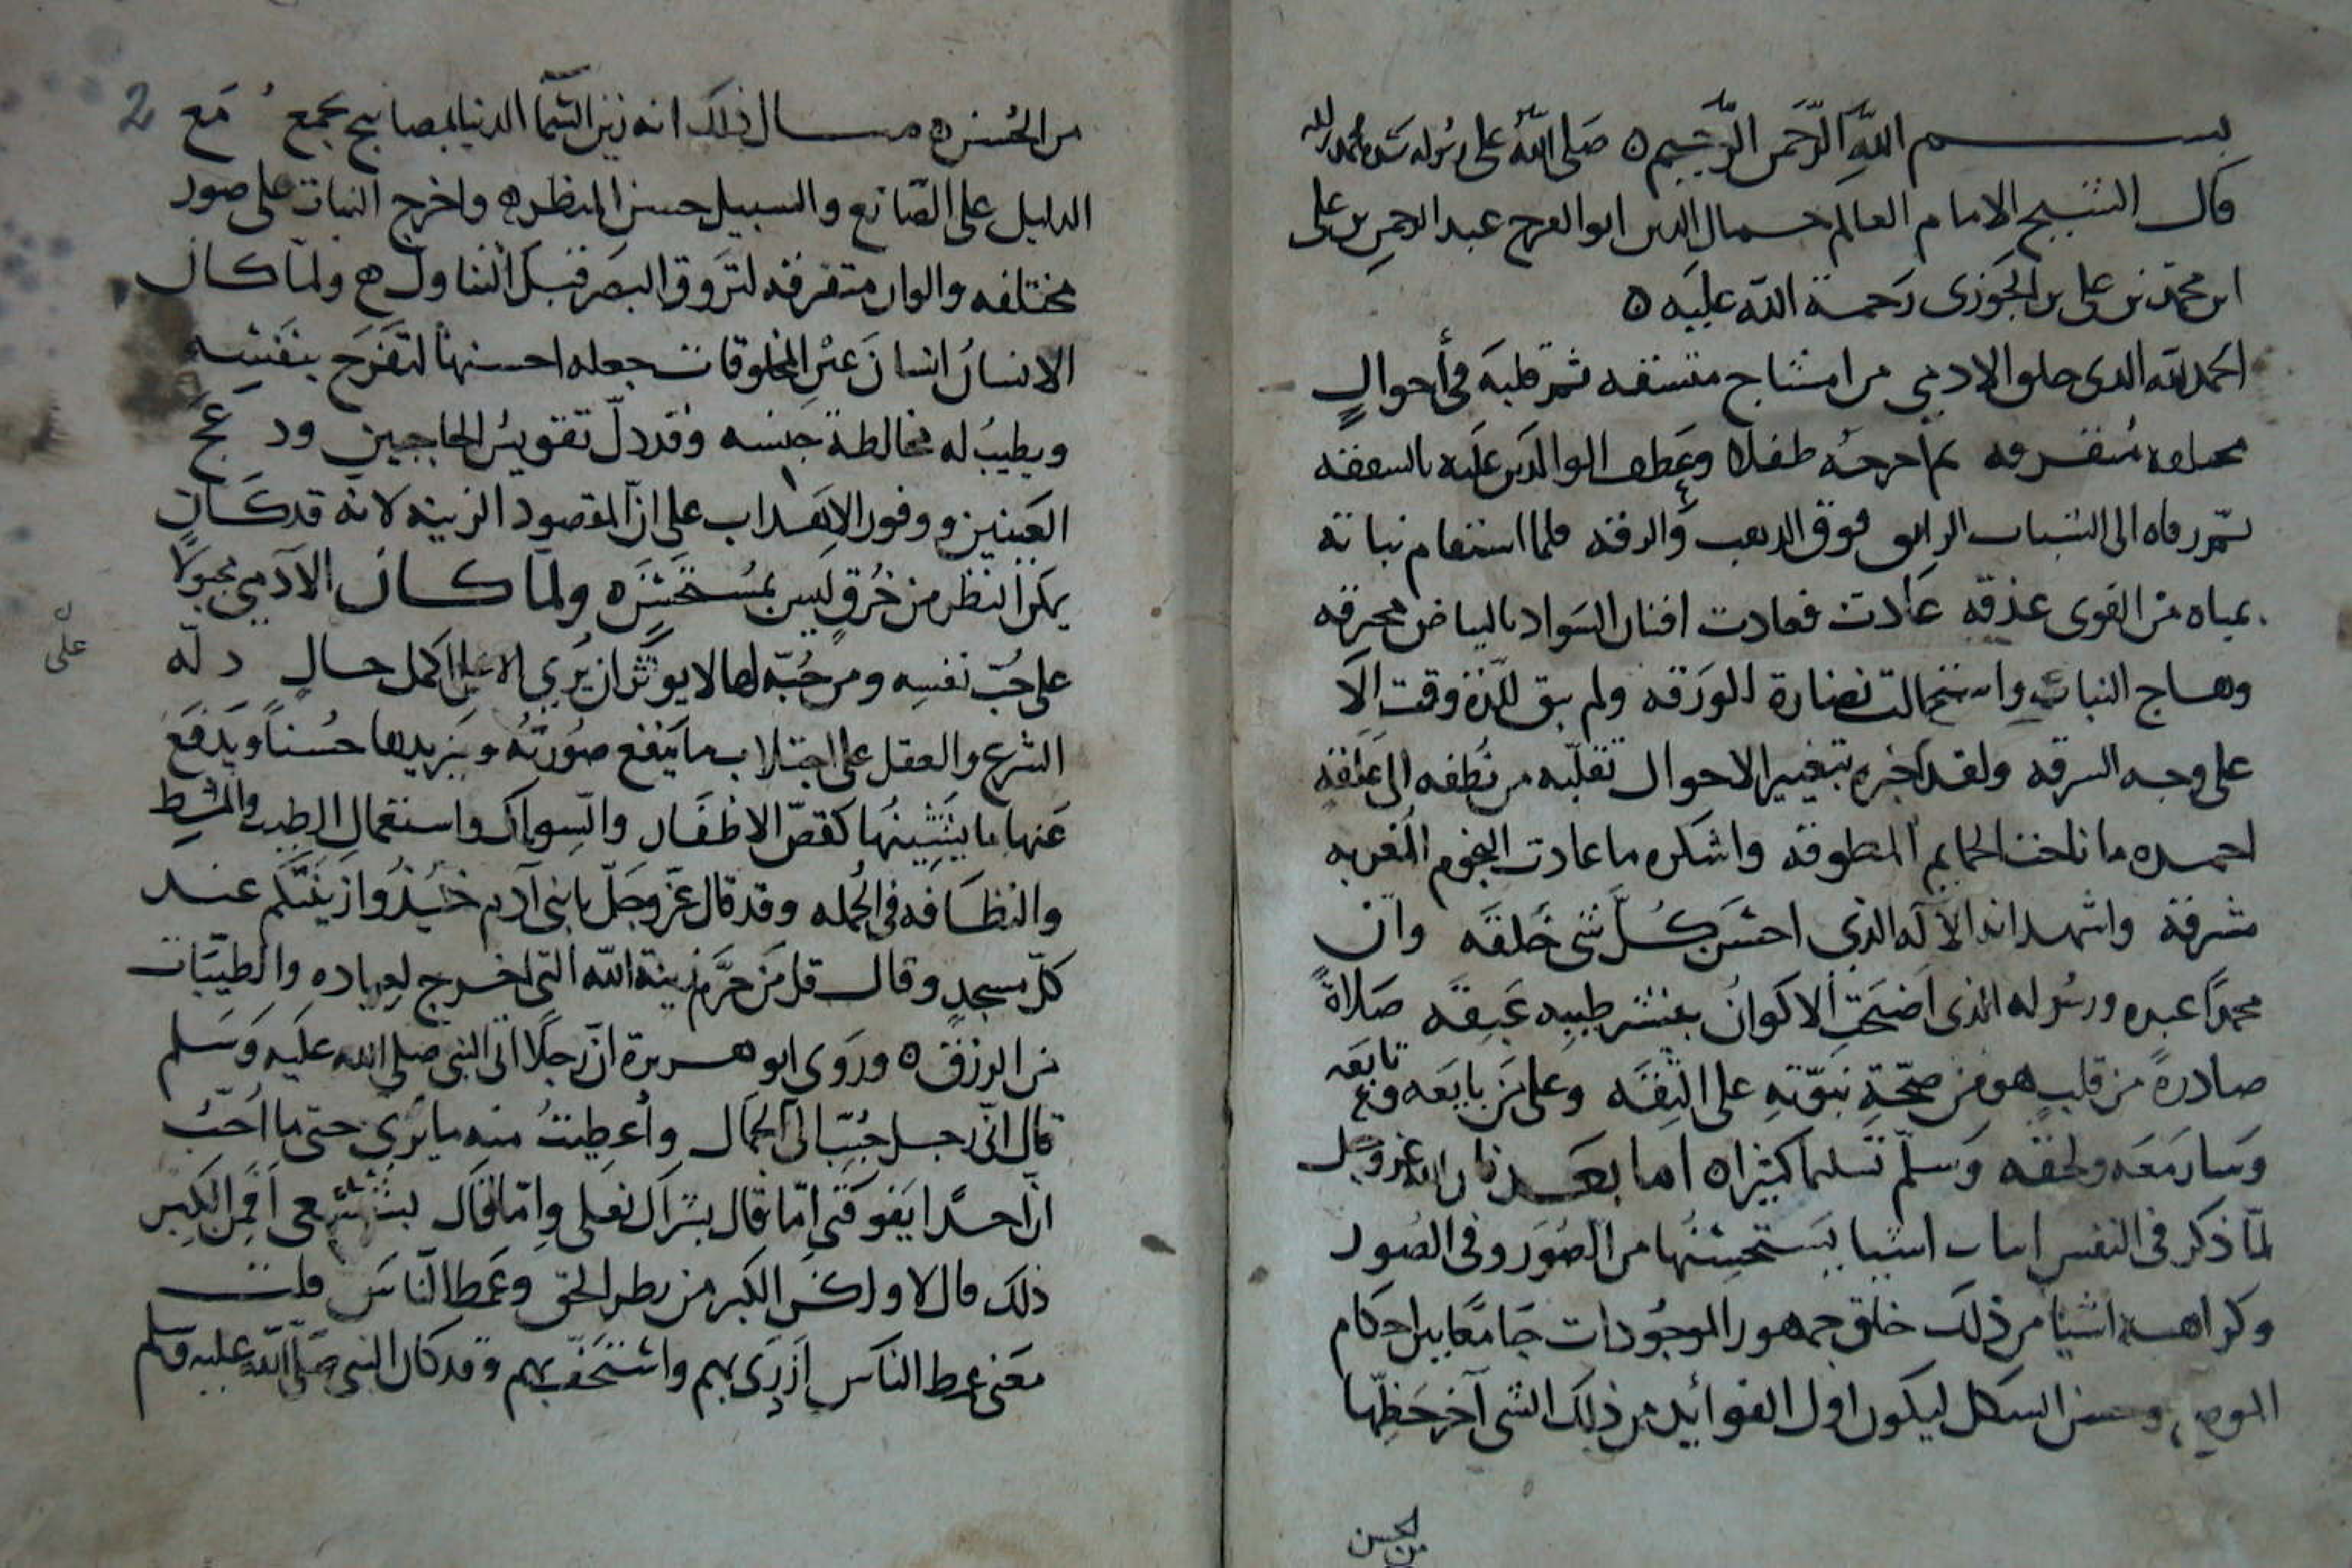 بسم الله الرحمن الرحيم ه صلى الله على رسوله سيدنا محمد وآله
قال الشيخ الامام العالم جمال الدين ابو الفرج عبد الرحمن بن علي
ابن محمد بن علي بن الجوزى رحمة الله عليه ه
الحمد لله الذى خلق الادمي من امشاج متسقه ثم قلبه في أحوالٍ
مختلفه متفرقه ثم اخرجه طفلا وعطف الوالدين عليه بالشفقه
ثم رقاه الى الشباب الرايق فوق الذهب والرقه فلما استقام نباته
بمياه من القوى غذقه عادت فعادت افنان السواد بالبياض محرقه
وهاج النبات واستحالت نضارة الورقه ولم يبق للذة وقت الا
على وجه السرقه ولقد اخبره بتغيير الاحوال تقلبه من نطفه الى علقه
احمده ما ناحت الحمايم المطوقه واشكره ما عادت النجوم المغربه
مشرقة واشهد انه الاله الذي احسن كل شي خلقه وان
محمدًا عبده ورسوله الذى اضحت الاكوان بنشر طيبه عبقه صلاةً
صادرةً من قلبٍ هو من صحة نبوته على الثقه وعلى من بايعه وتابعه
وسار معه ولحقه وسلم تسليما كثيرا ه اما بعد فان الله عز وجل
لما ذكر في النفس اسباب اشيا يستحسنها من الصور وفى الصور
وكراهية اشيا من ذلك خلق جمهور الموجودات جامعًا بين احكام
وحسن الشكل ليكون اول الفوايد من ذلك الشى آخر حظها
من الحسن
2
من الحسن ه مثال ذلك انه زين السما الدنيا بمصابيح تجمع مع
الدليل على الصانع والسبيل حسن المنظر ه واخرج النبات على صور
مختلفه والوان متفرقه لتروق البصر قبل التناول ه ولما كان
الانسان انسان عين المخلوقات جعله احسنها لتفرج بنفسه
ويطيب له مخالطة جنسه وقد دل تقويس الحاجبين ودعج
العينين ووفور الاهداب على ان المقصود الزينه لانه قد كان
يمكن النظر من خُرقٍ ليس بمستحسنه ولما كان الآدمي مجبولا
على حب نفسه ومن حبه لها لا يوثر ان يُرى الا على اكمل حالٍ دله
على
الشرع والعقل على اجتلاب ما ينفع صورته ويزيدها حسنًا ويدفع
عنها ما يشينها كقص الاظفار والسواك واستعمال الطيب والمشط
والنظافه في الجمله وقد قال عز وجل يا بني آدم خذوا زينتكم عند
كل مسجدٍ وقال قل من حرم زينة الله التي اخرج لعباده والطيبات
من الرزق ه وروى ابو هريرة ان رجلًا اتى النبي صلى الله عليه وسلم
قال انى رجل حُبب الى الجمال وأعطيتُ منه ما ترى حتى ما احب
ان احدًا يفوقنى اما قال بشراك نعلى واما قال بشسعى افمن الكبر
ذلك قال لا ولكن الكبر من بطر الحق وغمط الناس قلت
معنى غمط الناس ازرى بهم واستخف بهم وقد كان النبي صلى الله عليه وسلم